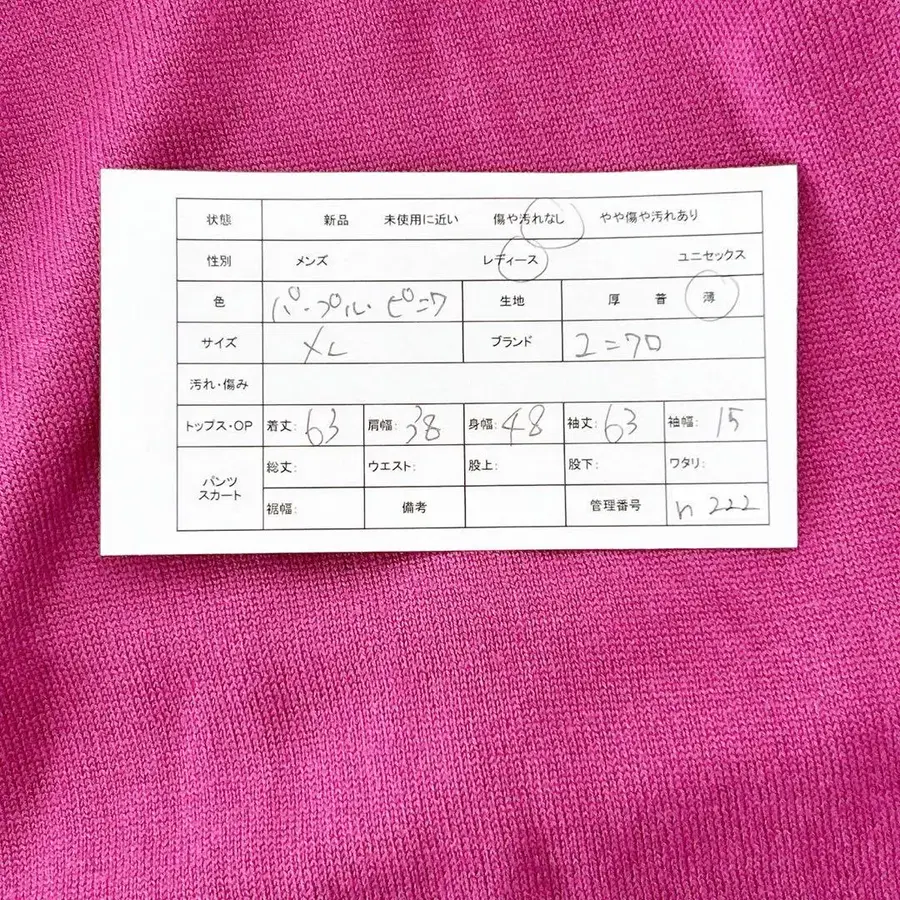 状態 新品 未使用に近い 傷や汚れなし やや傷や汚れあり
性別 メンズ レディース ユニセックス
色 パープル・ピンク 生地 厚 普 薄
サイズ XL ブランド ユニクロ
汚れ・傷み
トップス・OP 着丈: 63 肩幅: 38 身幅: 48 袖丈: 63 袖幅: 15
パンツ スカート 総丈: ウエスト: 股上: 股下: ワタリ:
裾幅: 備考 管理番号 n 222